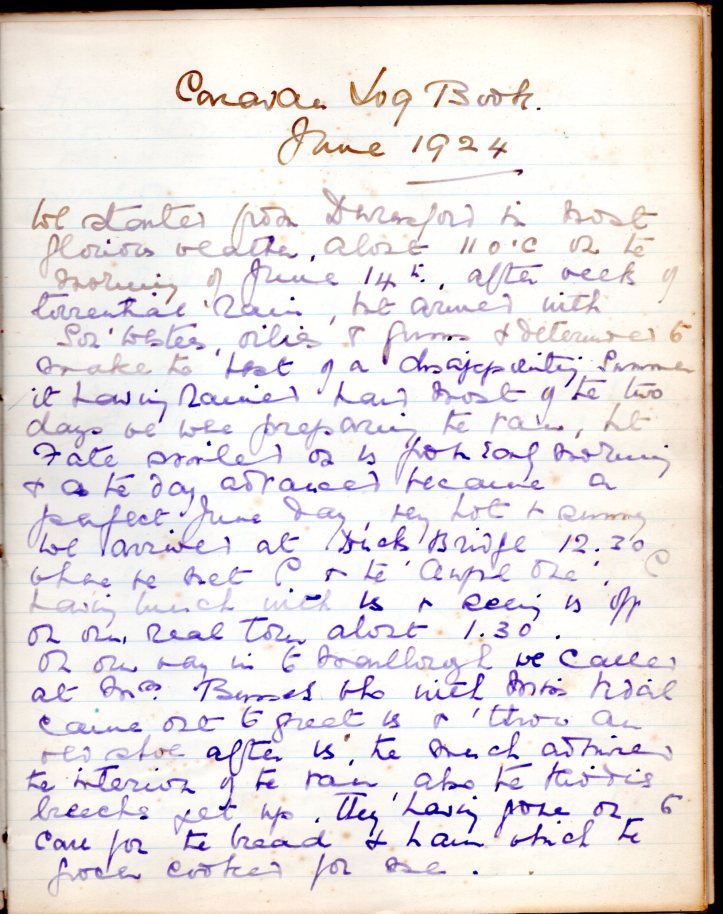 Caravan Log Book.
June 1924
We started from Durnsford in most
glorious weather, about 11 o'c on the
morning of June 14th, after weeks of
torrential rain, but armed with
Sou'westers, oilies & gums & determined to
make the best of a disappointing Summer
it having rained hard most of the two
days we were preparing the van, but
Fate smiled on us from early morning
& as the day advanced became a
perfect June day, very hot & sunny
We arrived at Bridge 12.30
where we met C & the ' one', C
having lunch with us & seeing us off
on our real tour about 1.30.
On our way in to Marlborough we called
at Mrs. who with Miss
came out to greet us & 'throw an
old shoe' after us, he much admired
the interior of the van, also the
breeches get up. They having gone on to
call for the bread & ham which the
grocer cooked for me.